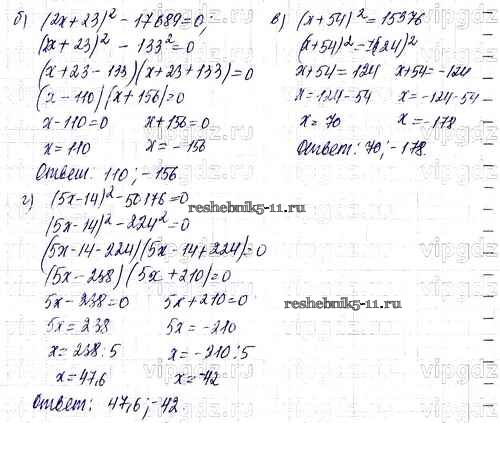 б) (2x + 23)² - 17689 = 0;
(2x + 23)² - 133² = 0
(x + 23 - 133)(x + 23 + 133) = 0
(x - 110)(x + 156) = 0
x - 110 = 0 x + 156 = 0
x = 110 x = - 156
Ответ: 110; - 156.
в) (x + 54)² = 15376
(x + 54)² = 124)²
x + 54 = 124 x + 54 = -124
x = 124 - 54 x = -124 - 54
x = 70 x = -178
Ответ: 70; -178.
г) (5x - 14)² - 50176 = 0
(5x - 14)² - 224² = 0
(5x - 14 - 224)(5x - 14 + 224) = 0
(5x - 238)(5x + 210) = 0
5x - 238 = 0 5x + 210 = 0
5x = 238 5x = -210
x = 238 : 5 x = -210 : 5
x = 47,6 x = -42
Ответ: 47,6; -42.
reshebnik5-11.ru
reshebnik5-11.ru
vipgdz